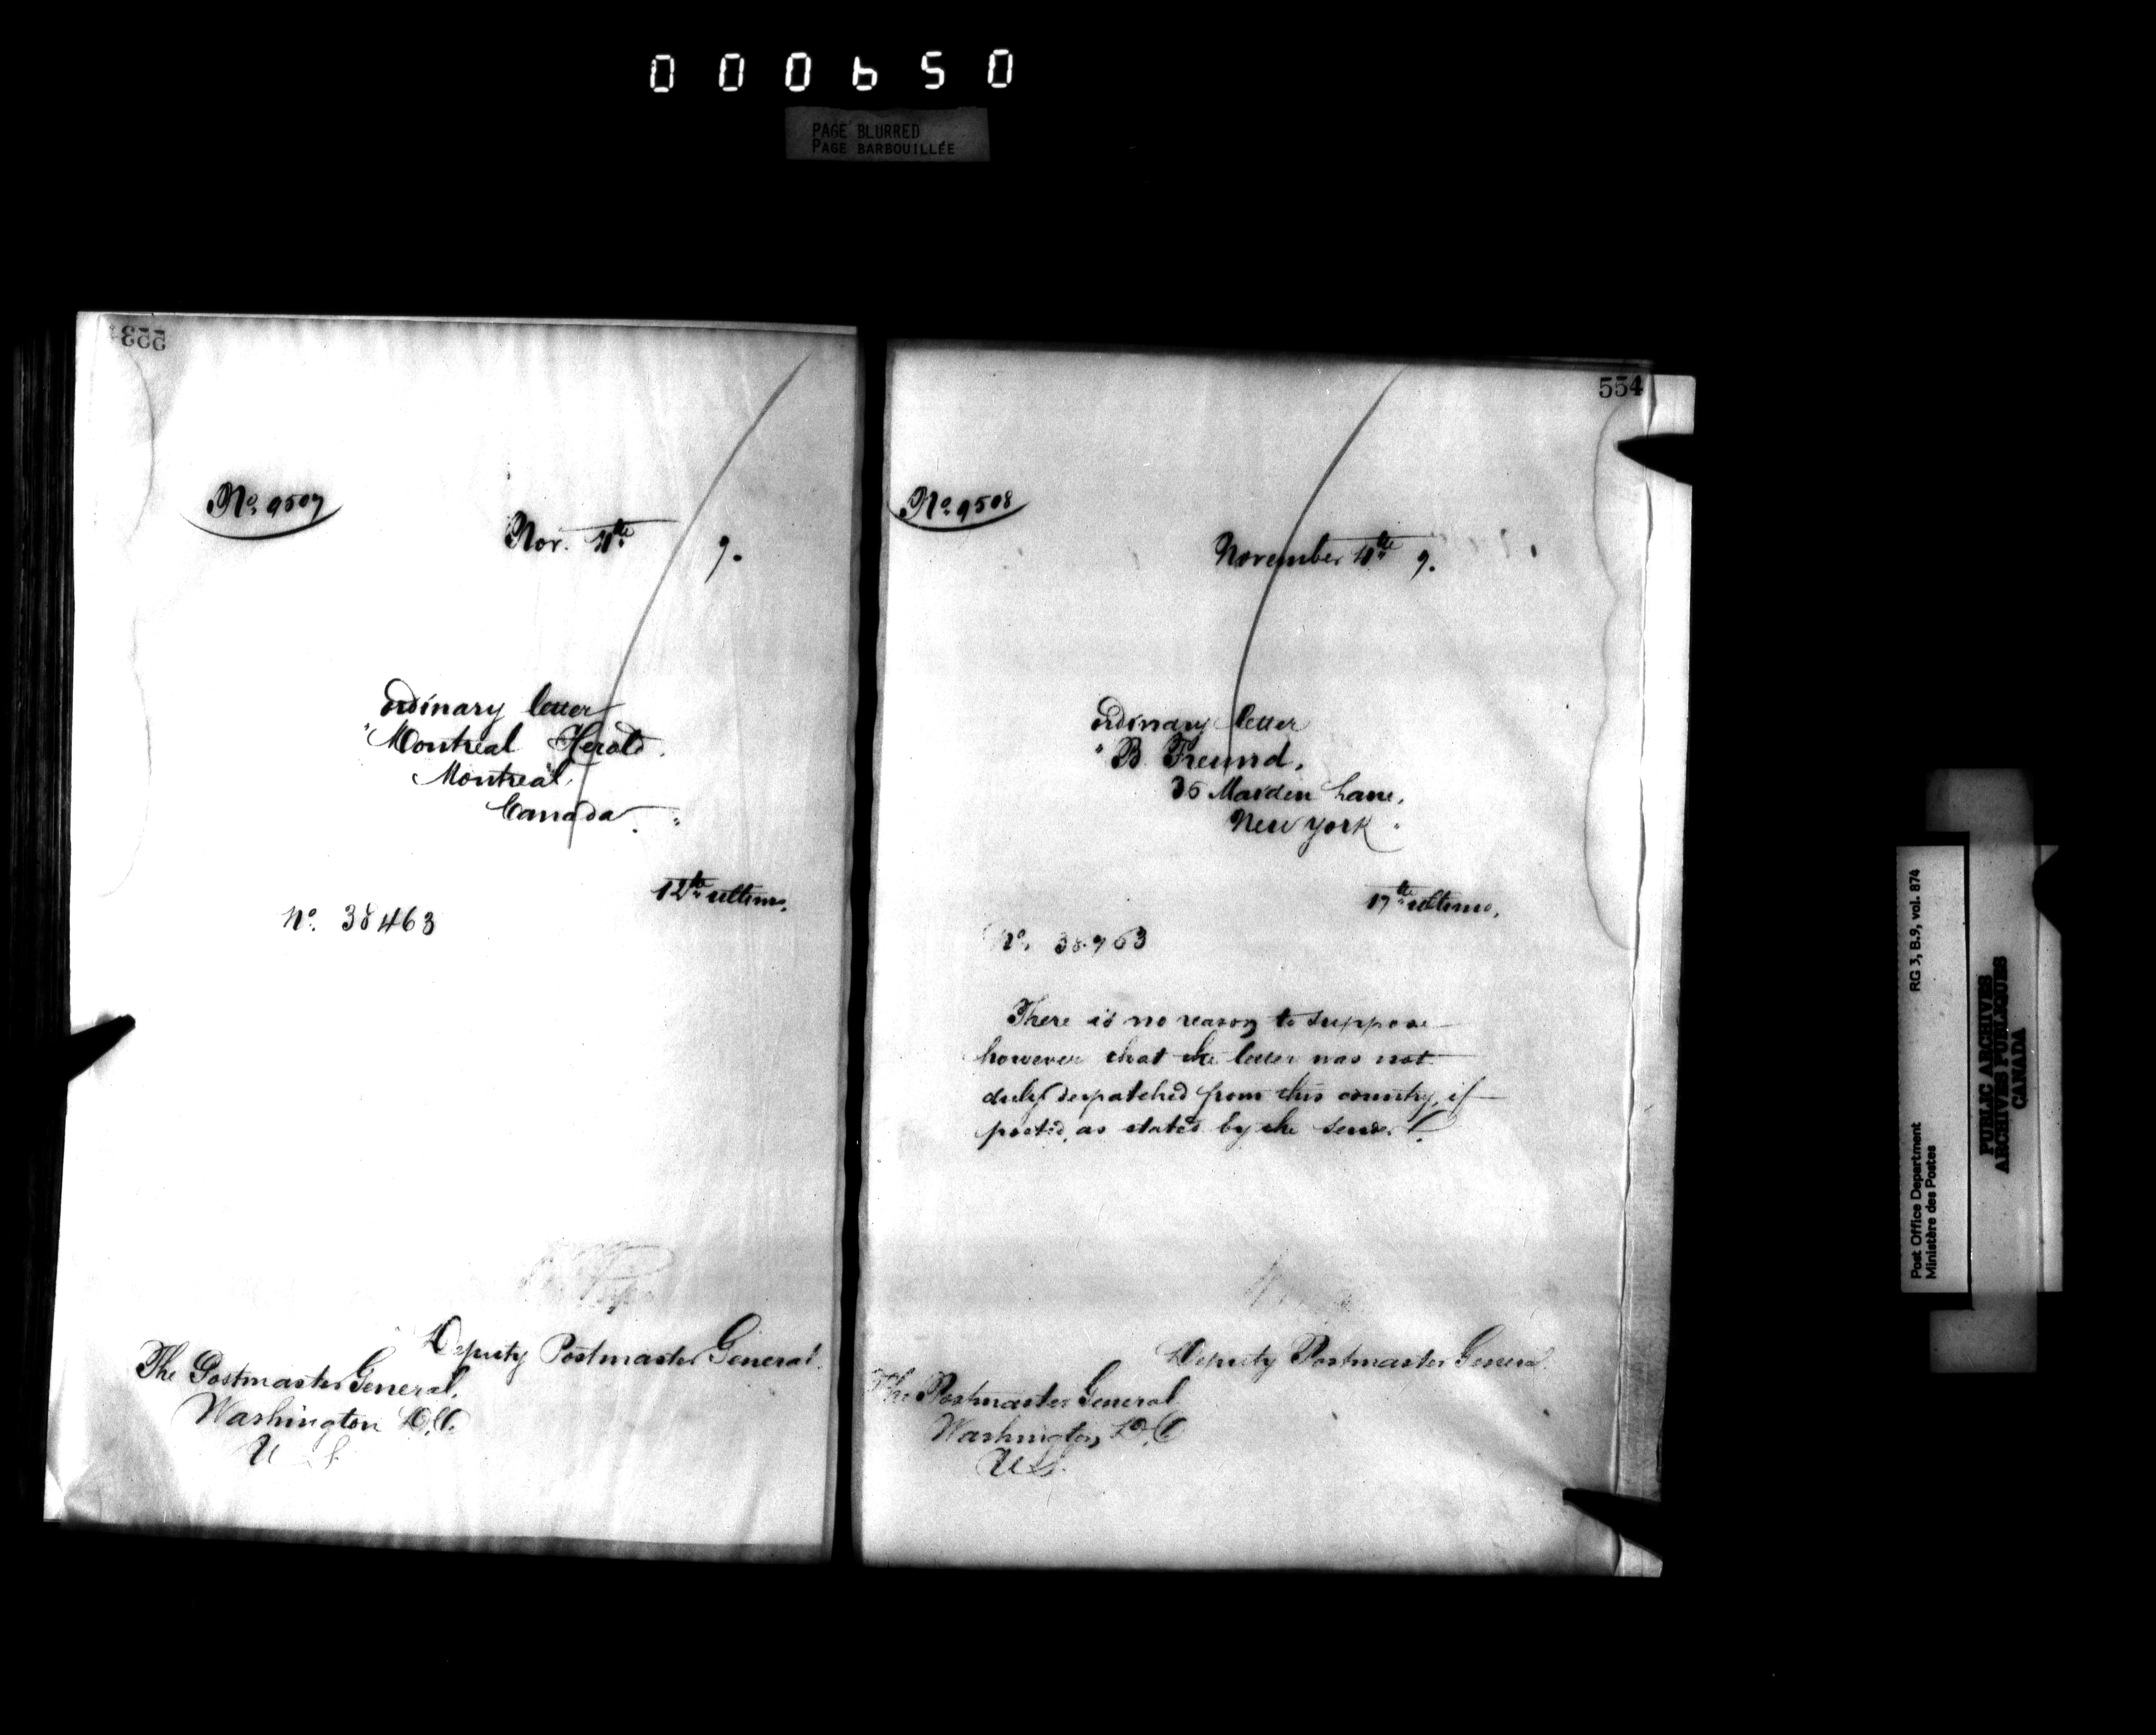 000650
PAGE BLURRED
PAGE BARBOUILLÉE
553
No. 9507
Nov. 4th 9.
ordinary letter
"Montreal Herald.
Montreal,
Canada."
12th ultimo,
No. 38463
Deputy Postmaster General.
The Postmaster General,
Washington D.C.
U S.
554
No. 9508
November 4th 9.
ordinary letter
"B. Freund,
36 Maiden Lane,
New York"
17th ultimo,
No. 38963
There is no reason to suppose
however that the letter was not
duly despatched from this country, if
posted, as stated by the sender.
Deputy Postmaster General.
The Postmaster General
Washington, D.C
U.S.
Post Office Department
Ministère des Postes
RG 3, B.9, vol. 874
PUBLIC ARCHIVES
ARCHIVES PUBLIQUES
CANADA